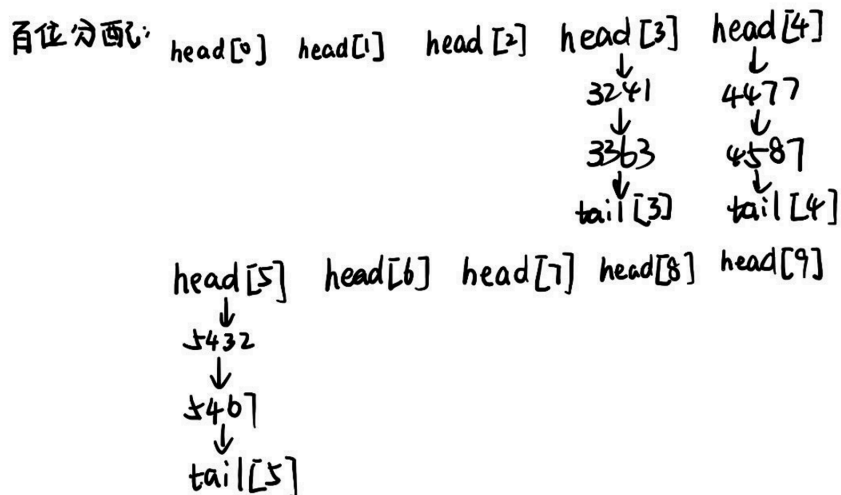 百位分配:
head[0] head[1] head[2] head[3] head[4]
3241 4477
3363 4587
tail[3] tail[4]
head[5] head[6] head[7] head[8] head[9]
5432
5467
tail[5]